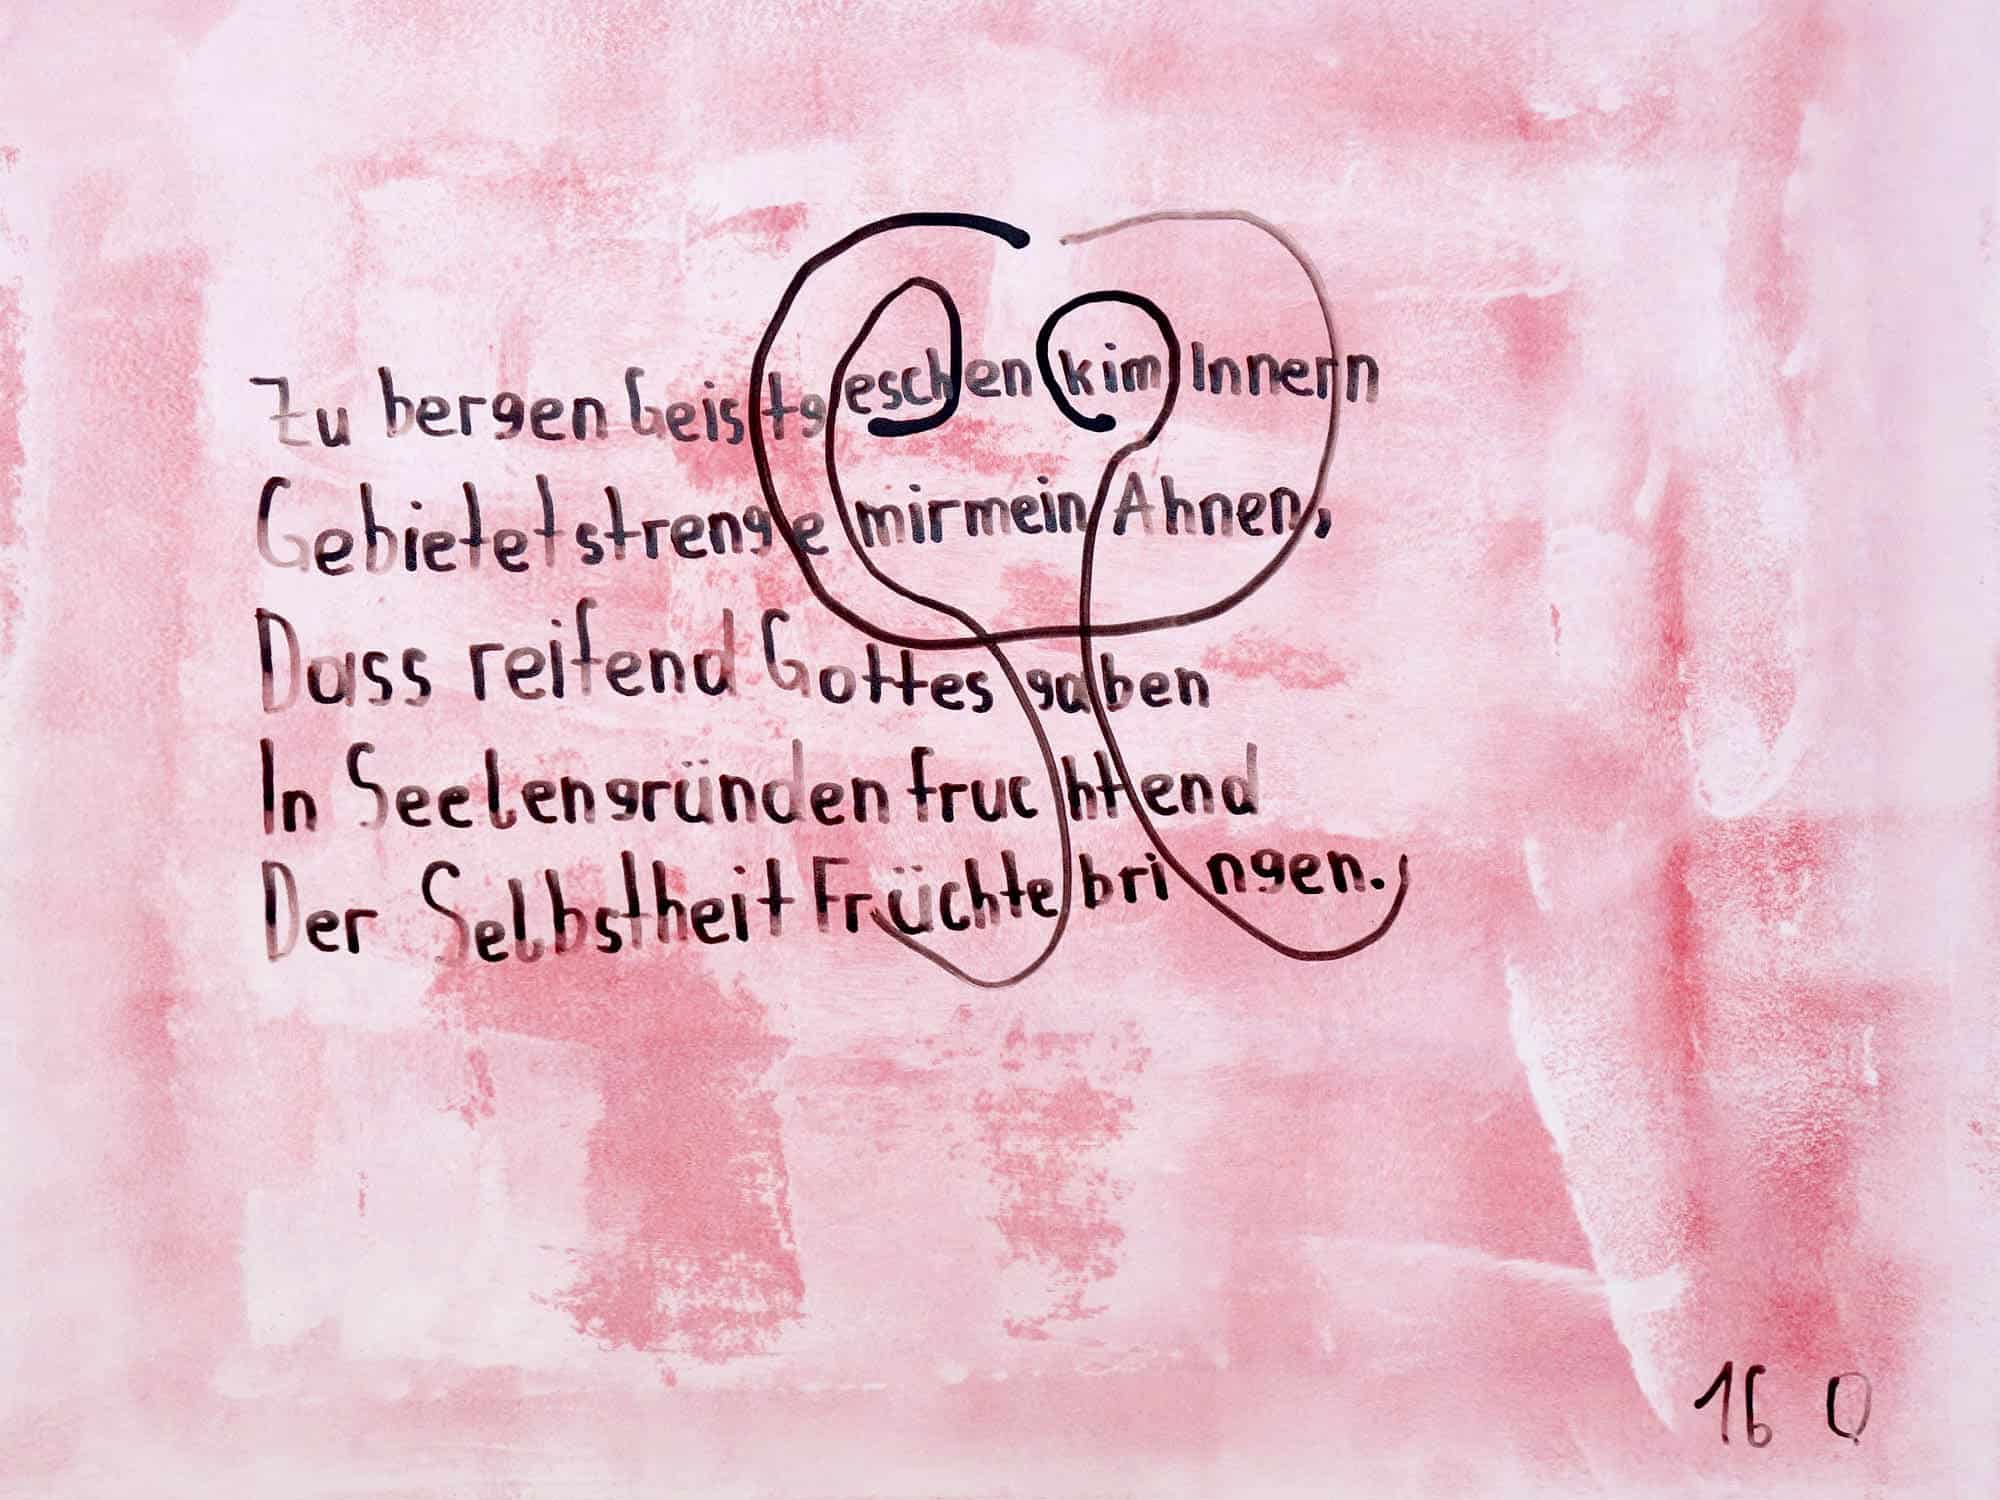 Zu bergen Geistgeschenk im Innern
Gebietet strenge mir mein Ahnen,
Dass reifend Gottesgaben
In Seelengründen fruchtend
Der Selbstheit Früchte bringen.
16 Q